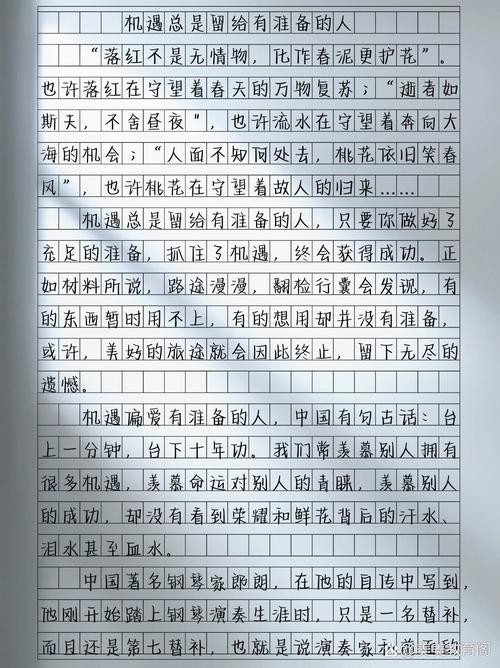 机遇总是留给有准备的人
“落红不是无情物，化作春泥更护花”。
也许落红在守望着春天的万物复苏；“逝者如
斯夫，不舍昼夜"，也许流水在守望着奔向大
海的机会；“人面不知何处去，桃花依旧笑春
风”，也许桃花在守望着故人的归来……
机遇总是留给有准备的人，只要你做好了
充足的准备，抓住了机遇，终会获得成功。正
如材料所说，路途漫漫，翻检行囊会发现，有
的东西暂时用不上，有的想用却并没有准备，
或许，美好的旅途就会因此终止，留下无尽的
遗憾。
机遇偏爱有准备的人，中国有句古话：台
上一分钟，台下十年功。我们常羡慕别人拥有
很多机遇，羡慕命运对别人的青睐，羡慕别人
的成功，却没有看到荣耀和鲜花背后的汗水、
泪水甚至血水。
中国著名钢琴家郎朗，在他的自传中写到，
他刚开始踏上钢琴演奏生涯时，只是一名替补，
而且还是第七替补，也就是说演奏家和
教育阁